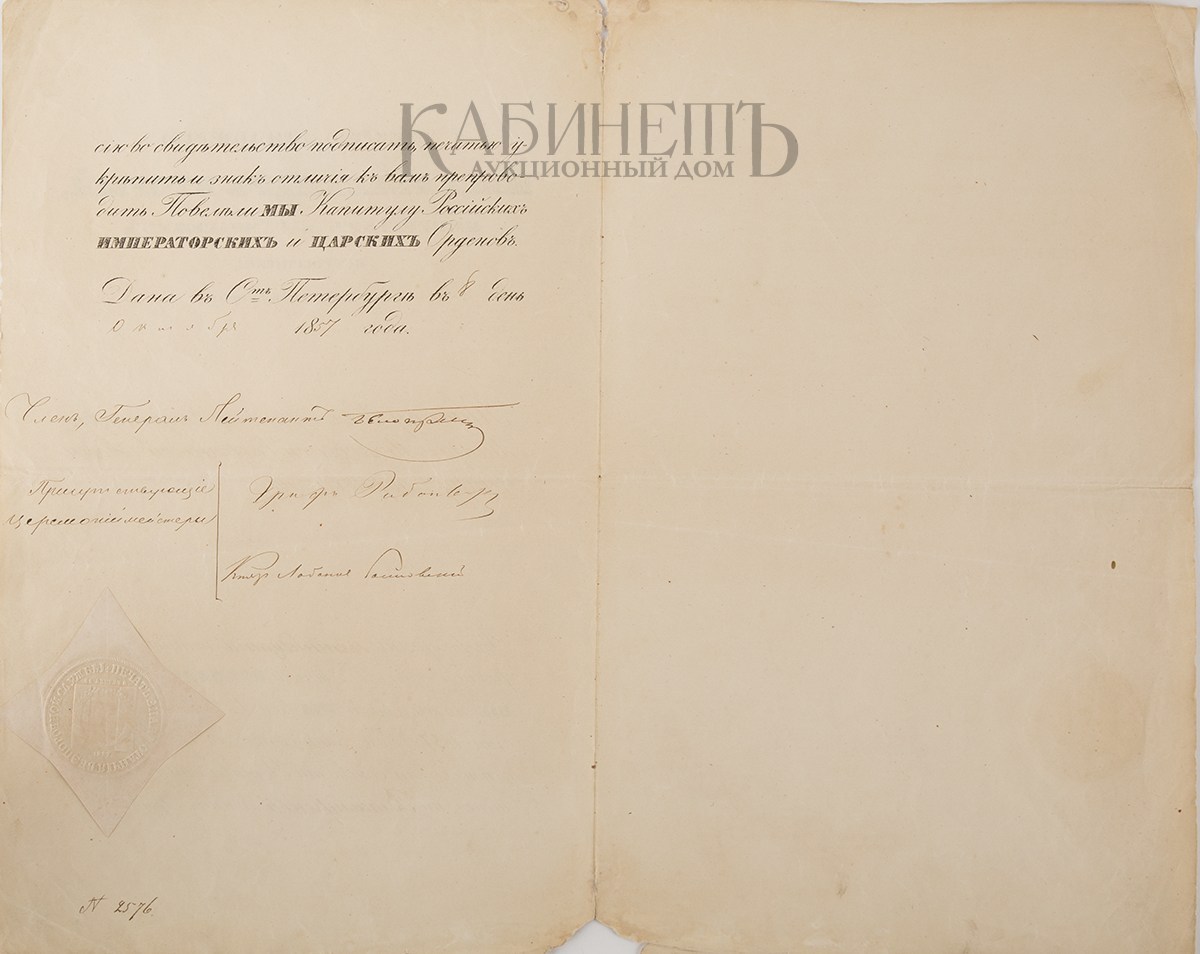 КАБИНЕТЪ
АУКЦИОННЫЙ ДОМ
сію во свидѣтельство подписать, печатью у-
крѣпить и знакъ отличія къ вамъ препрово-
дить Повелѣли МЫ Капитулу Россійскихъ
ИМПЕРАТОРСКИХЪ и ЦАРСКИХЪ Орденовъ.
Дана въ Стъ Петербургѣ въ 8 день
Октября 1857 года.
Членъ, Генералъ Лейтенантъ
Присутствующіе
Церемоніймейстеры
Графъ
Князь Лобановъ Ростовскій
N 2576.